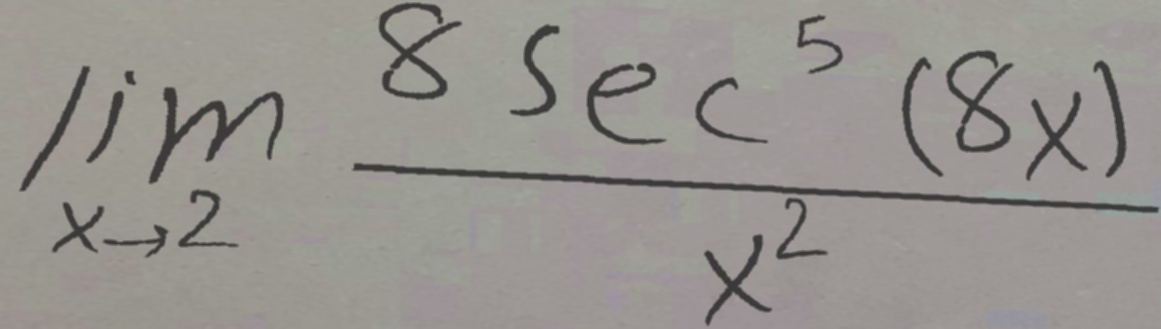 lim x→2 8 sec^5 (8x) / x^2